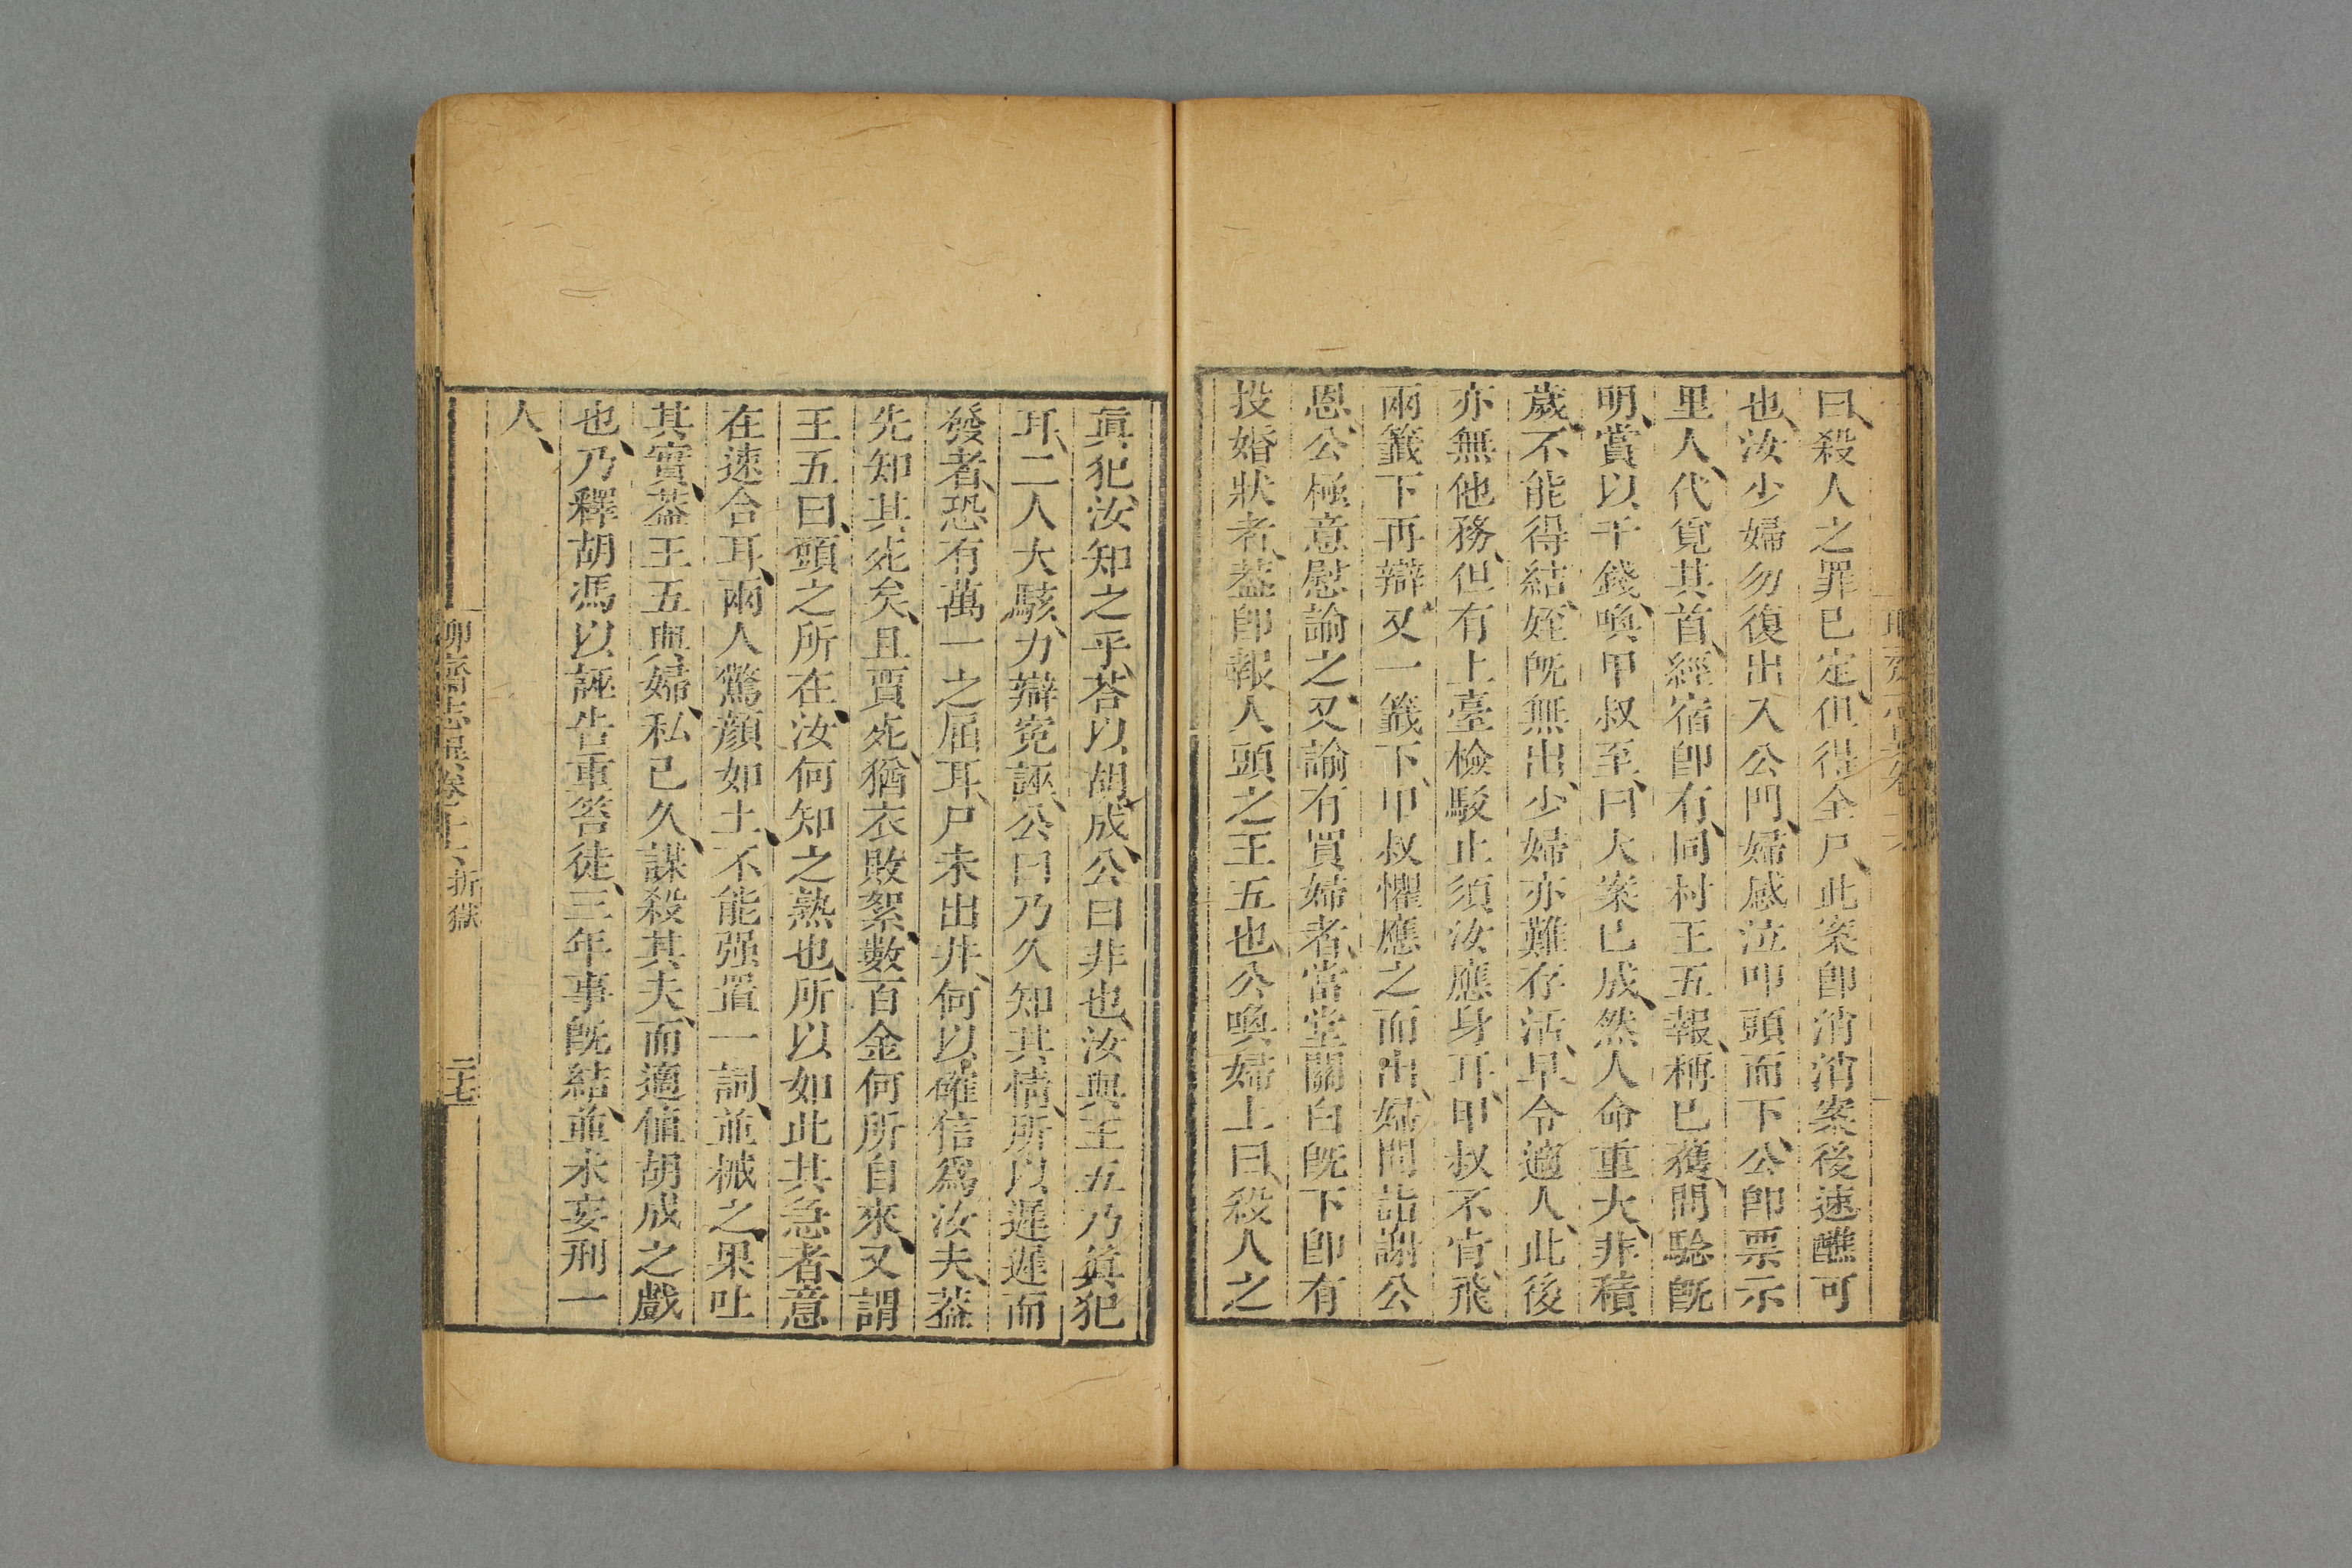 曰、殺人之罪已定、但得全尸、此案卽消、消案後速醮可
也、汝少婦勿復出入公門、婦感泣叩頭而下、公卽票示
里人、代覓其首、經宿卽有、同村王五報、稱已獲、問驗旣
明、賞以千錢、喚甲叔至、曰大案已成、然人命重大、非積
歲、不能得結、姪旣無出、少婦亦難存活、早令適人、此後
亦無他務、但有上臺檢駁、止須汝應身耳、甲叔不肯、飛
兩籤下、再辯、又一籤下、甲叔懼、應之而出、婦聞、詣謝公
恩、公極意慰諭之、又諭有買婦者、當堂關白、旣下、卽有
投婚狀者、葢卽報人頭之王五也、公喚婦上、曰、殺人之
眞犯、汝知之乎、荅以胡成、公曰非也、汝與王五乃眞犯
耳、二人大駭、力辯寃誣、公曰乃久知其情、所以遲遲而
發者、恐有萬一之屈耳、尸未出井、何以確信爲汝夫、葢
先知其死矣、且賈死、猶衣敗絮、數百金何所自來、又謂
王五曰、頭之所在、汝何知之熟也、所以如此其急者、意
在速合耳、兩人驚顔如土、不能强置一詞、並械之、果吐
其實、葢王五與婦、私已久、謀殺其夫、而適値胡成之戲
也、乃釋胡、馮以誣告重笞、徒三年、事旣結、並未妄刑一
人、
聊齋志異卷十六 折獄
二十七